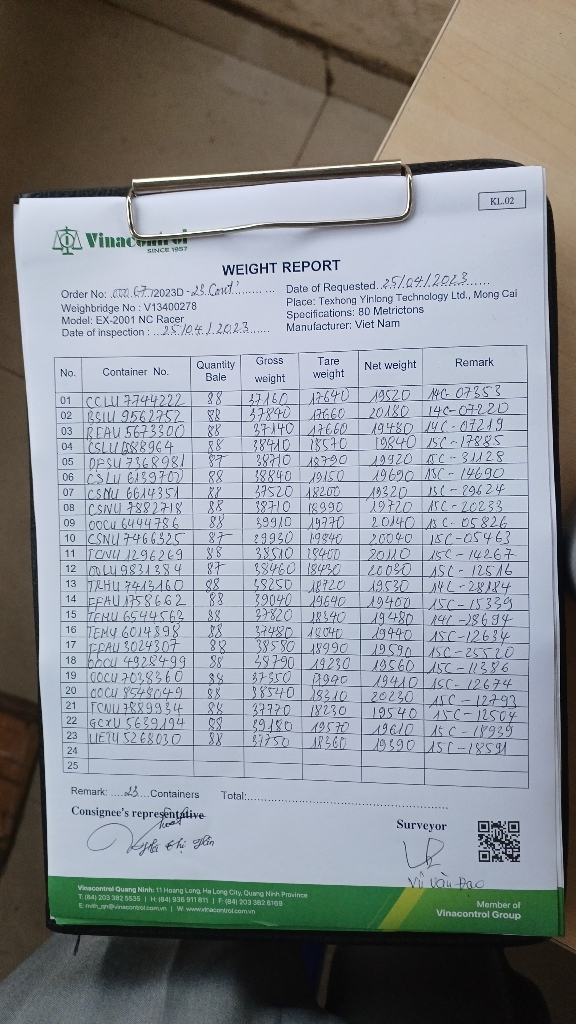 KL.02
Vinacontrol
SINCE 1957
WEIGHT REPORT
Order No: /2023D - 23 Cont'
Date of Requested. 25/04/2023
Weighbridge No : V13400278
Place: Texhong Yinlong Technology Ltd., Mong Cai
Model: EX-2001 NC Racer
Specifications: 80 Metrictons
Date of inspection : 25/04/2023
Manufacturer: Viet Nam
No. Container No. Quantity Bale Gross weight Tare weight Net weight Remark
01 CCLU 7744222 88 37160 17640 19520 14C-07353
02 BSIU 9562752 88 37840 17660 20180 14C-07220
03 BEAU 5673300 88 37140 17660 19480 14C-07219
04 CSLU 88 38410 18570 19840 15C-17885
05 DFSU 7368981 87 38710 18790 19920 15C-31128
06 CSLU 6139702 88 38840 19150 19690 15C-14690
07 CSNU 6614351 88 37520 18200 19320 15C-29624
08 CSNU 7882718 88 38710 18990 19720 15C-20233
09 OOCU 6494786 88 39910 19770 20140 15C-05826
10 CSNU 7466325 87 19840 20040 15C-05463
11 TCNU 1296269 88 38510 18400 20110 15C-14267
12 OOLU 9831384 87 38460 18430 20030 15C-12516
13 TRHU 7413160 88 38250 18720 19530 14C-28184
14 FFAU 1758662 88 39040 19640 19400 15C-15339
15 TEMU 6544563 88 37820 18340 19480 14C-28694
16 TEMU 6014898 88 37480 18040 19440 15C-12634
17 FFAU 3024307 88 38580 18990 19590 15C-25520
18 OOCU 4928499 88 38790 19230 19560 15C-11386
19 OOCU 7038360 88 37350 17940 19410 15C-12674
20 OOCU 8548049 88 38540 18310 20230 15C-12793
21 TCNU 7889934 88 37770 18230 19540 15C-12504
22 GCXU 5639194 88 39180 19570 19610 15C-18939
23 UETU 5268030 88 37750 18360 19390 15C-18591
24
25
Remark: 23 Containers Total:
Consignee's representative
Surveyor
Vũ Văn Đạo
Vinacontrol Quang Ninh: 11 Hoang Long, Ha Long City, Quang Ninh Province
T: (84) 203 382 5535 | H: (84) 936 911 811 | F: (84) 203 382 8169
E: nvth_qn@vinacontrol.com.vn | W: www.vinacontrol.com.vn
Member of
Vinacontrol Group